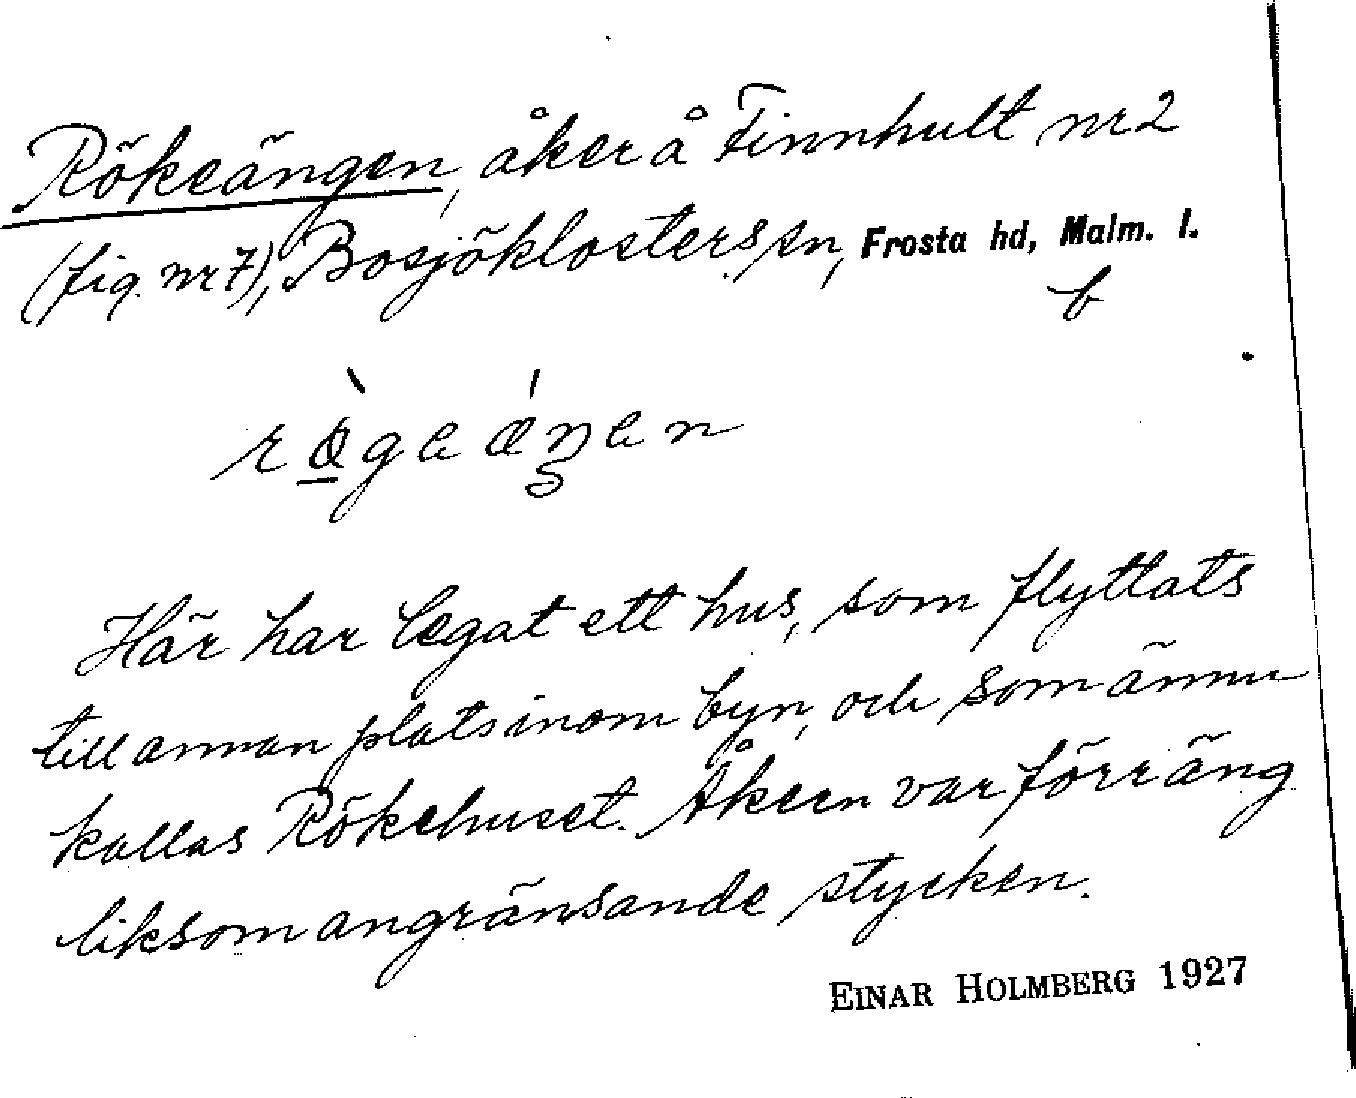 Rökeängen, åker å Finnhult nr 2
(fig. nr 7), Bosjöklosters sn, Frosta hd, Malm. l.
b
Här har legat ett hus, som flyttats
till annan plats inom byn, och som ännu
kallas Rökehuset. Åkern var förr äng
liksom angränsande stycken.
EINAR HOLMBERG 1927